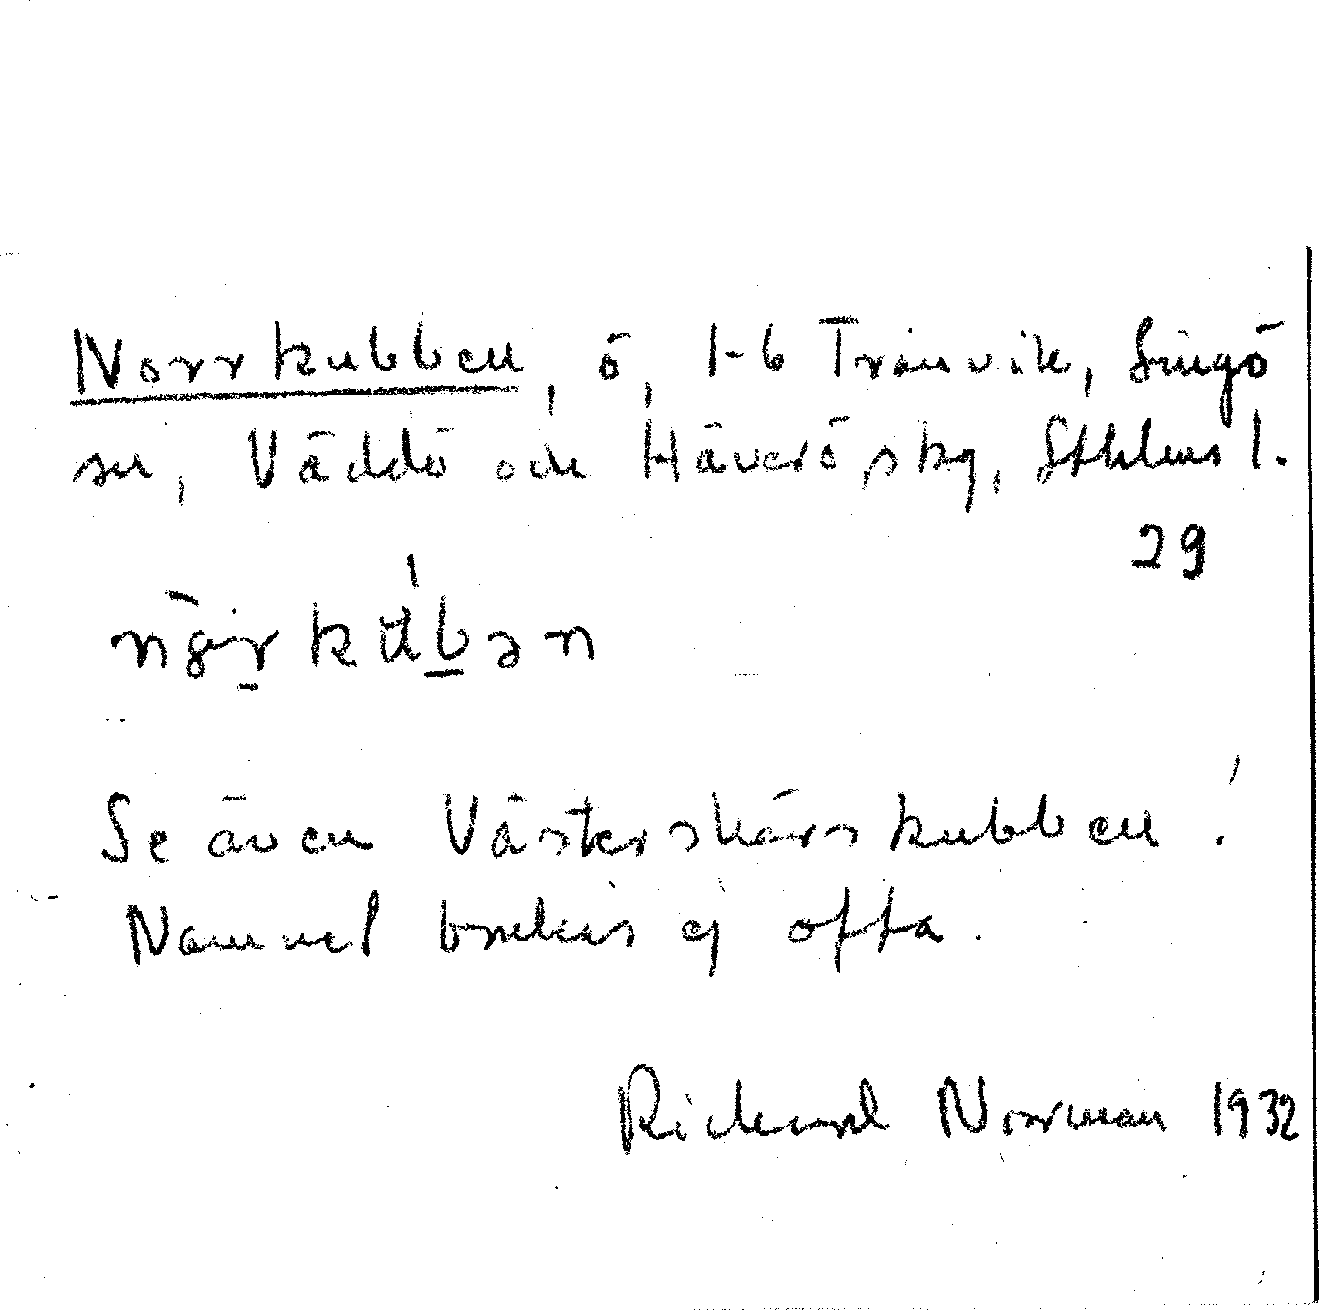 Norrkubben, ö, 1-6 Tranvik, Singö
sn, Väddö och Häverö skg, Sthlms l.
29
Se även Västerskärskubben!
Namnet brukas ej ofta.
Richard Norman 1932